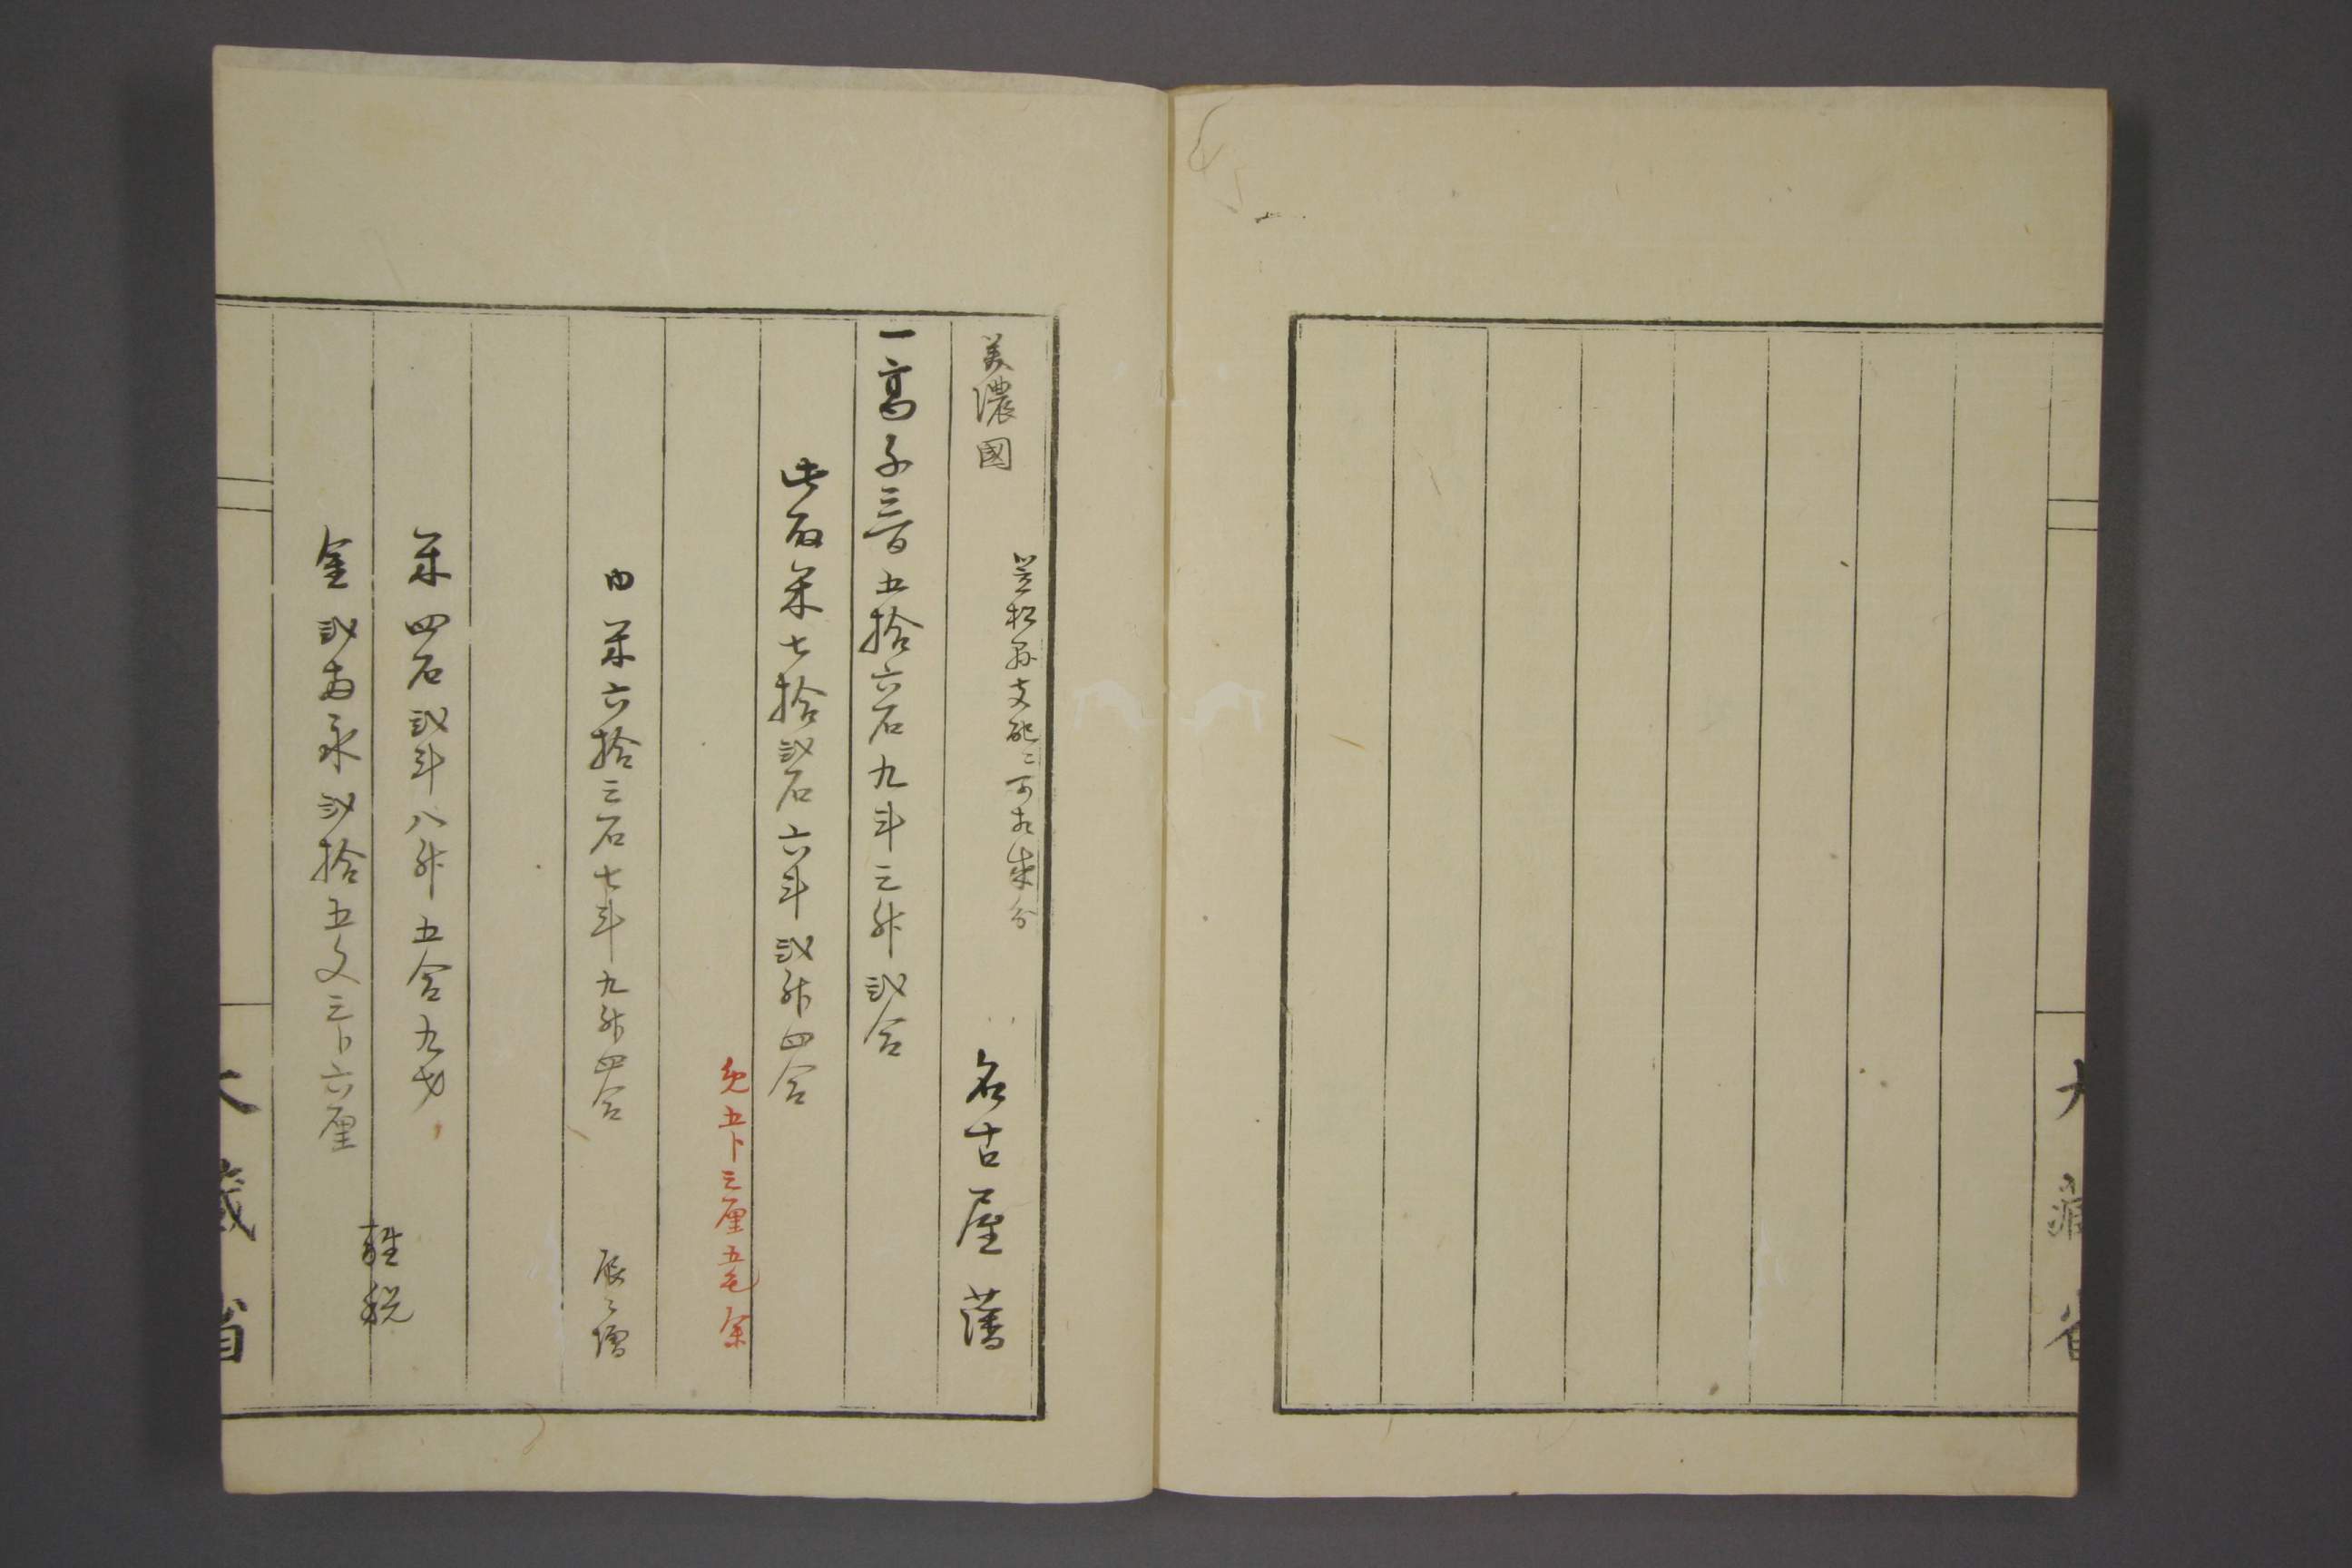 大藏省
美濃國
笠松縣支配ニ可相成分
名古屋藩
一高千三百五拾六石九斗三升弐合
此取米七拾弐石六斗弐升四合
免五卜三厘五毛余
内米六拾三石七斗九升四合　辰ニ増
米四石弐斗八升五合九才
金弐両永弐拾五文三卜六厘
雑税
大藏省